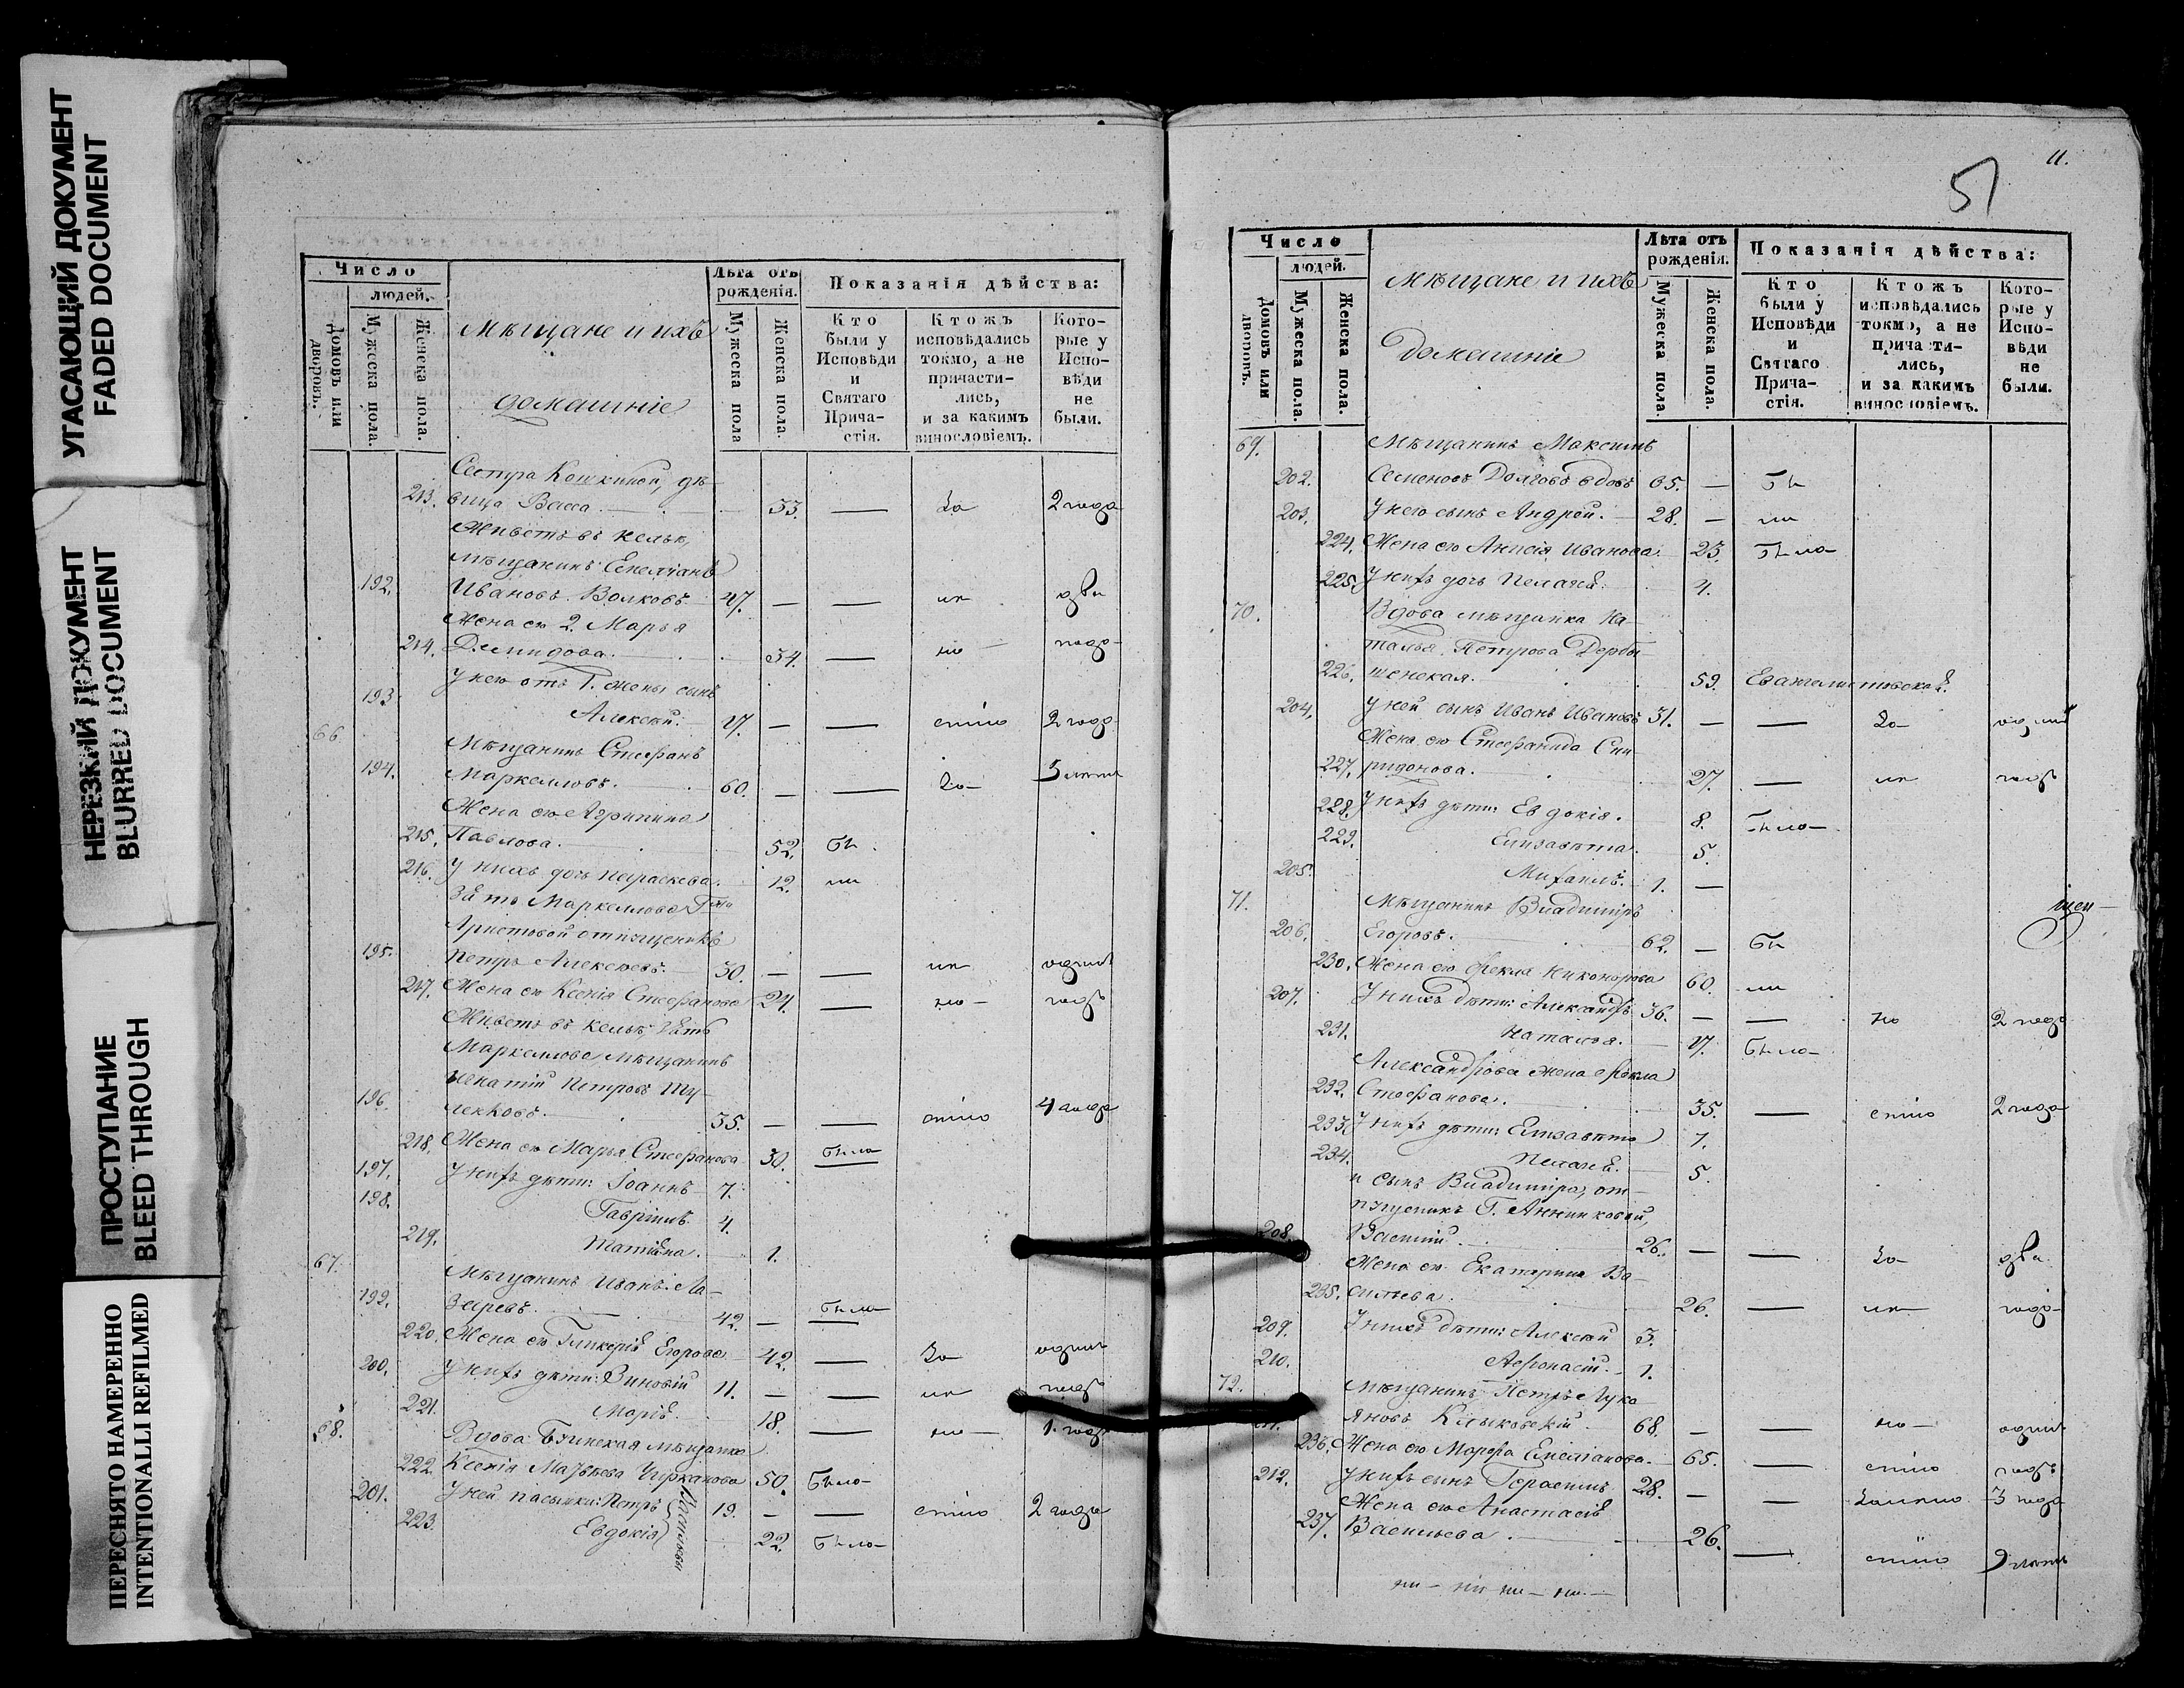 УГАСАЮЩИЙ ДОКУМЕНТ
FADED DOCUMENT
НЕРЕЗКИЙ ДОКУМЕНТ
BLURRED DOCUMENT
ПРОСТУПАНИЕ
BLEED THROUGH
ПЕРЕСНЯТО НАМЕРЕННО
INTENTIONALLI REFILMED
Число
людей.
Домовъ или дворовъ.
Мужеска пола.
Женска пола.
Мѣщане и ихъ
домашніе
Лѣта отъ
рожденія.
Мужеска пола
Женска пола.
Показанія дѣйства:
Кто
были у
Исповѣди
и
Святаго
Прича-
стія.
Ктожъ
исповѣдались
токмо, а не
причасти-
лись,
и за какимъ
винословіемъ.
Кото-
рые у
Испо-
вѣди
не
были.
Сестра Кошкиной, дѣ-
213. вица Васса. 33. — За 2 года
Живетъ въ кельѣ,
мѣщанинъ Емеліанъ
192. Ивановъ Волковъ 47. — — два
Жена его 2. Марья
214. Демидова. 34. — года
У него отъ 1. жены сынъ
193. Алексѣй. 17. — — 2 года
66. Мѣщанинъ Стефанъ
194. Маркелловъ. 60. — — За 5 лѣтъ
Жена его Агрипина
215. Павлова. 52. Бы
216. У нихъ дочь Параскева. 12. ли
Зять Маркеллова Г-жи
Аристовой отпущенникъ
195. Петръ Алексѣевъ. 30. — — одинъ
217. Жена его Ксенія Стефанова 24. — годъ
Живетъ въ кельѣ, зять
Маркеллова, мѣщанинъ
Игнатій Петровъ Ту-
196. ленковъ. 35. — — 4 года
218. Жена его Марья Стефанова 30. была
197. У нихъ дѣти: Іоаннъ 7.
198. Гавріилъ 4.
219. Татіана. 1.
67. Мѣщанинъ Иванъ Ла-
199. заревъ. 42. — былъ
220. Жена его Гликерія Егорова 42. — За одинъ
200. У нихъ дѣти: Зиновій 11. — — годъ
221. Марія. 18. — 1. годъ
68. Вдова мѣщанка
222. Ксенія Матвѣева 50. была
201. У ней пасынки: Петръ 19. — — 2 года
223. Евдокія 22. была
11.
51
Число
людей.
Домовъ или дворовъ.
Мужеска пола.
Женска пола.
Мѣщане и ихъ
Домашніе
Лѣта отъ
рожденія.
Мужеска пола.
Женска пола.
Показанія дѣйства:
Кто
были у
Исповѣди
и
Святаго
Прича-
стія.
Ктожъ
исповѣдались
токмо, а не
причасти-
лись,
и за какимъ
винословіемъ.
Кото-
рые у
Испо-
вѣди
не
были.
69. Мѣщанинъ Максимъ
202. Семеновъ Долговъ вдовъ 65. — Бы
203. У него сынъ Андрей. 28. — ли
224. Жена его Анисія Иванова. 23. Была
225. У нихъ дочь Пелагея. 4.
70. Вдова мѣщанка На-
талья Петрова Дербы-
226. шенская. 59. Евангелистовской.
204. У ней сынъ Иванъ Ивановъ 31. — — За одинъ
Жена его Стефанида Спи-
227. ридонова. 27. — годъ
228. У нихъ дѣти: Евдокія. 8. была
229. Елизавета. 5.
205. Михаилъ. 1. —
71. Мѣщанинъ Владиміръ
206. Егоровъ. 62. — Бы
230. Жена его Фекла Никонорова 60. ли
207. У нихъ дѣти: Александръ 36. — — 2 года
231. Наталья. 17. была
Александрова жена Фекла
232. Стефанова. 35. — 2 года
233. У нихъ дѣти: Елизавета 7.
234. Пелагея. 5.
и сынъ Владиміра, от-
пущеникъ Г. Анненковой,
208. Василій. 26. — — За два
Жена его Екатерина Ва-
235. сильева. 26. — года
209. У нихъ дѣти: Алексѣй 3.
210. Афонасій. 1.
72. Мѣщанинъ Петръ Лука-
211. яновъ 68. — — одинъ
236. Жена его Марфа Емеліанова. 65. — годъ
212. У нихъ сынъ Герасимъ 28. — — 3 года
Жена его Анастасія
237. Васильева. 26. — 9 лѣтъ